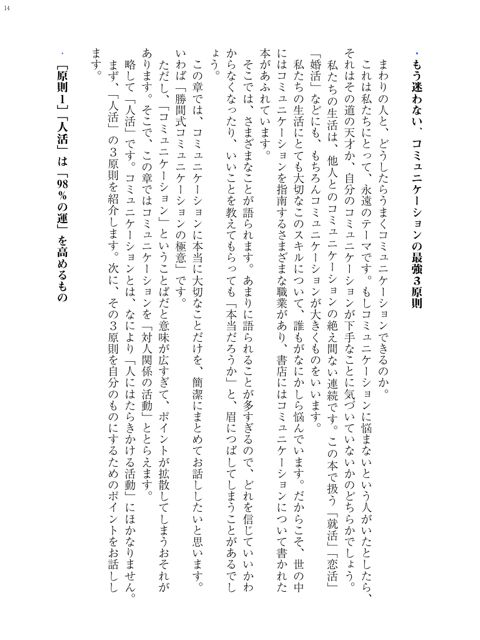 14
・もう迷わない、コミュニケーションの最強3原則
まわりの人と、どうしたらうまくコミュニケーションできるのか。
これは私たちにとって、永遠のテーマです。もしコミュニケーションに悩まないという人がいたとしたら、
それはその道の天才か、自分のコミュニケーションが下手なことに気づいていないかのどちらかでしょう。
私たちの生活は、他人とのコミュニケーションの絶え間ない連続です。この本で扱う「就活」「恋活」
「婚活」などにも、もちろんコミュニケーションが大きくものをいいます。
私たちの生活にとても大切なこのスキルについて、誰もがなにかしら悩んでいます。だからこそ、世の中
にはコミュニケーションを指南するさまざまな職業があり、書店にはコミュニケーションについて書かれた
本があふれています。
そこでは、さまざまなことが語られます。あまりに語られることが多すぎるので、どれを信じていいかわ
からなくなったり、いいことを教えてもらっても「本当だろうか」と、眉につばしてしまうことがあるでし
ょう。
この章では、コミュニケーションに本当に大切なことだけを、簡潔にまとめてお話ししたいと思います。
いわば「勝間式コミュニケーションの極意」です。
ただし、「コミュニケーション」ということばだと意味が広すぎて、ポイントが拡散してしまうおそれが
あります。そこで、この章ではコミュニケーションを「対人関係の活動」ととらえます。
略して「人活」です。コミュニケーションとは、なにより「人にはたらきかける活動」にほかなりません。
まず、「人活」の3原則を紹介します。次に、その3原則を自分のものにするためのポイントをお話しし
ます。
・［原則1］「人活」は「98％の運」を高めるもの